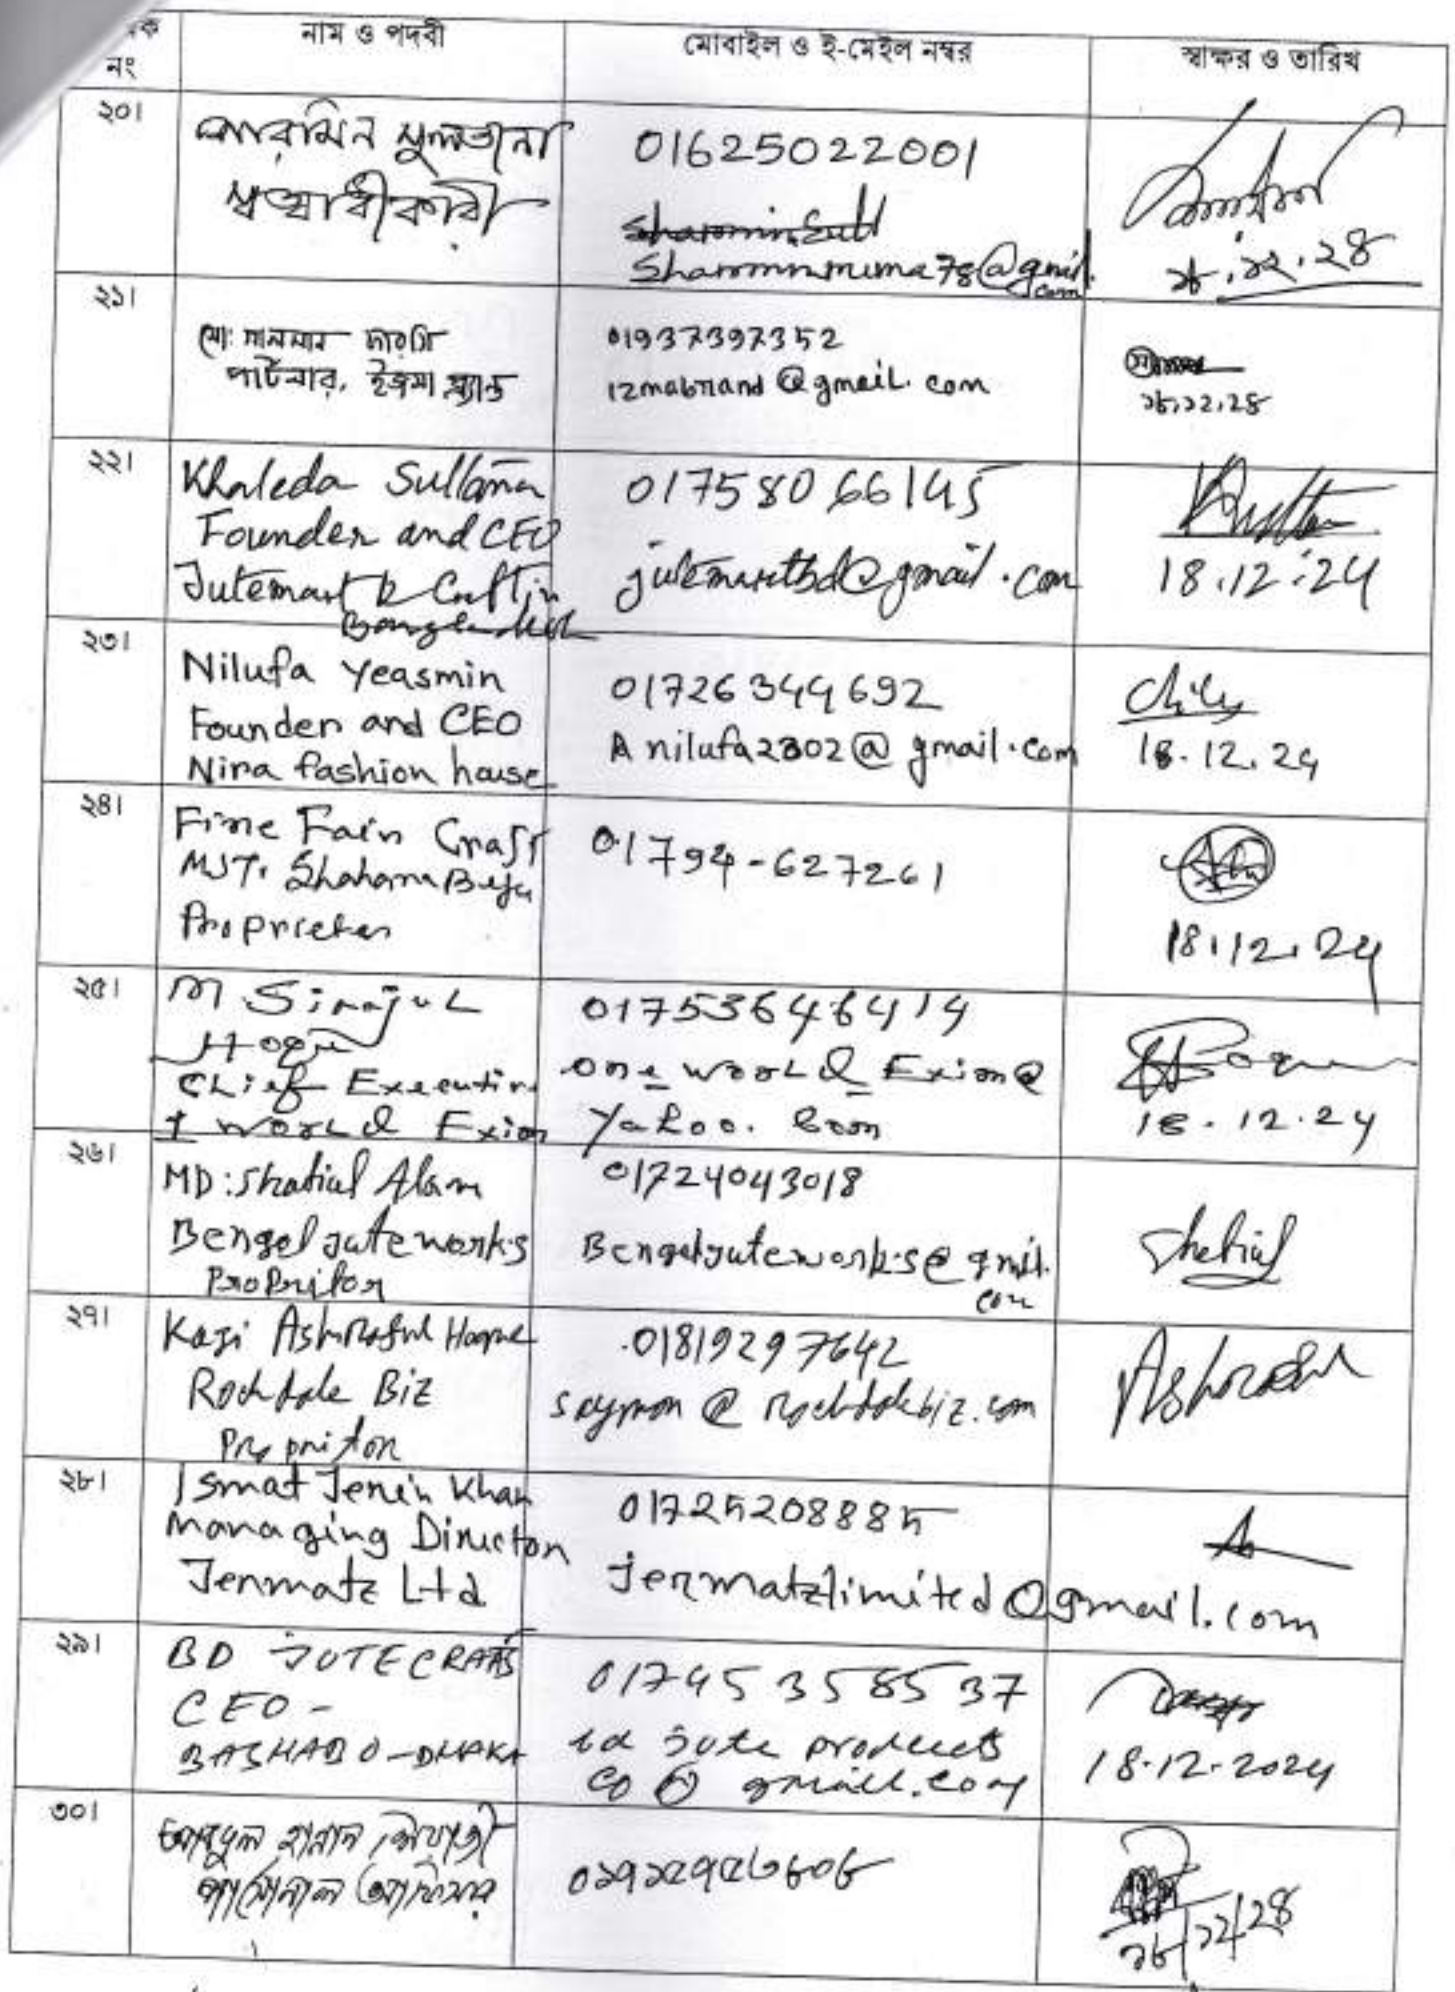 নং
নাম ও পদবী
মোবাইল ও ই-মেইল নম্বর
স্বাক্ষর ও তারিখ
২০।
শারমিন সুলতানা
স্বত্বাধীকারী
01625022001
১৮.১২.২৪
২১।
মো: সালমান ফারসি
পার্টনার, ইজমা ব্র্যান্ড
01937397352
izmabrand@gmail.com
১৮.১২.২৪
২২।
Khaleda Sultana
Founder and CEO
Jutemart & Craft in
Bangladesh
01758066145
jutemartbd@gmail.com
18.12.24
২৩।
Nilufa Yeasmin
Founder and CEO
Nira fashion house
01726344692
nilufa2302@gmail.com
18.12.24
২৪।
Fine Fair Craft
MST. Shahana
Proprieter
01794-627261
18.12.24
২৫।
M Sirajul
Hoque
Chief Executive
1 World Exim
01753646414
one_world_Exim@
Yahoo.Com
18.12.24
২৬।
MD: Shafiul Alam
Bengal jute works
Propritor
01724043018
Bengaljuteworks@gmil.
com
২৭।
Kazi Ashraful Hoque
Rochdale Biz
Propritor
01819297642
saymon@rochdalebiz.com
Ashraful
২৮।
Ismat Jerin Khan
Managing Director
Jenmatz Ltd
01725208885
jermatzlimited@gmail.com
২৯।
BD JUTECRAFTS
CEO -
BASHABO-DHAKA
01745358537
bd jute products
co@gmail.com
18.12.2024
৩০।
আবদুল হান্নান শিবাজী
পার্সোনাল অফিসার
১৮/১২/২৪